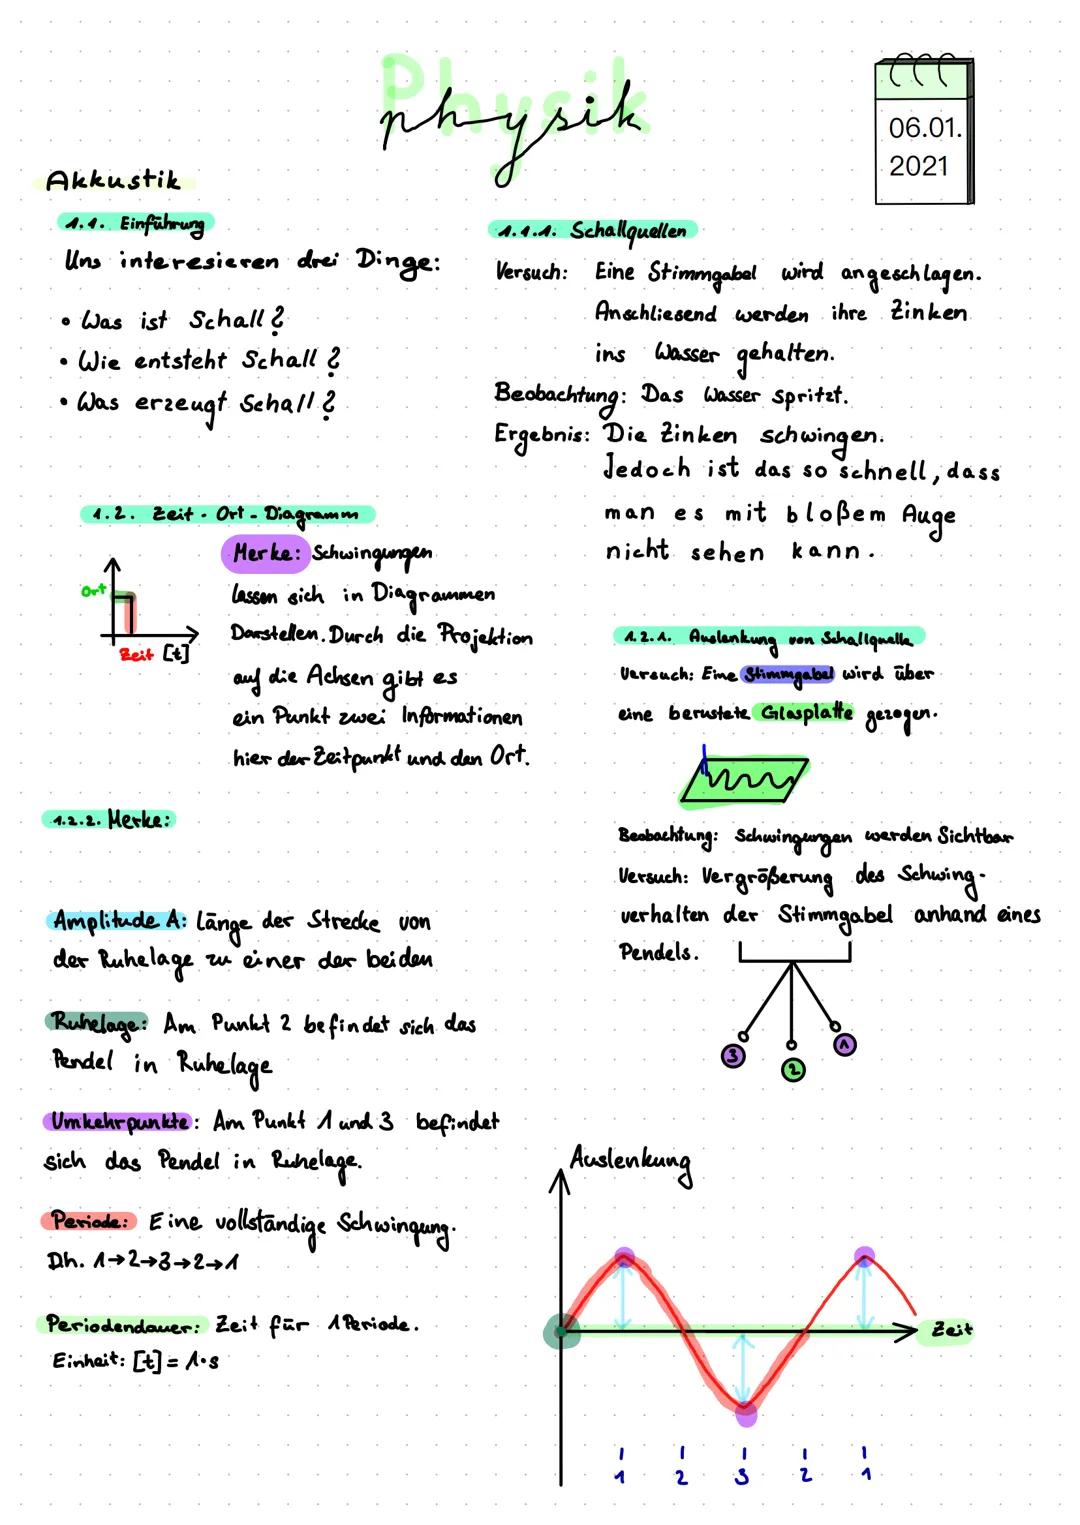 Physik
physik
06.01.
2021
Akkustik
1.1. Einführung
Uns interesieren drei Dinge:
• Was ist Schall?
• Wie entsteht Schall?
• Was erzeugt Schall?
1.1.1. Schallquellen
Versuch: Eine Stimmgabel wird angeschlagen.
Anschliesend werden ihre Zinken
ins Wasser gehalten.
Beobachtung: Das Wasser spritzt.
Ergebnis: Die Zinken schwingen.
Jedoch ist das so schnell, dass
man es mit bloßem Auge
nicht sehen kann.
1.2. Zeit-Ort-Diagramm
Ort
Zeit [t]
Merke: Schwingungen
lassen sich in Diagrammen
Darstellen. Durch die Projektion
auf die Achsen gibt es
ein Punkt zwei Informationen
hier der Zeitpunkt und den Ort.
1.2.1. Auslenkung von Schallquelle
Versuch: Eine Stimmgabel wird über
eine berustete Glasplatte gezogen.
Beobachtung: Schwingungen werden Sichtbar
Versuch: Vergrößerung des Schwing-
verhalten der Stimmgabel anhand eines
Pendels.
3
2
1
1.2.2. Merke:
Amplitude A: Länge der Strecke von
der Ruhelage zu einer der beiden
Ruhelage: Am Punkt 2 befindet sich das
Pendel in Ruhelage
Umkehrpunkte: Am Punkt 1 und 3 befindet
sich das Pendel in Ruhelage.
Periode: Eine vollständige Schwingung.
D.h. 1→2→3→2→1
Periodendauer: Zeit für 1 Periode.
Einheit: [t] = 1·s
Auslenkung
Zeit
1 2 3 2 1